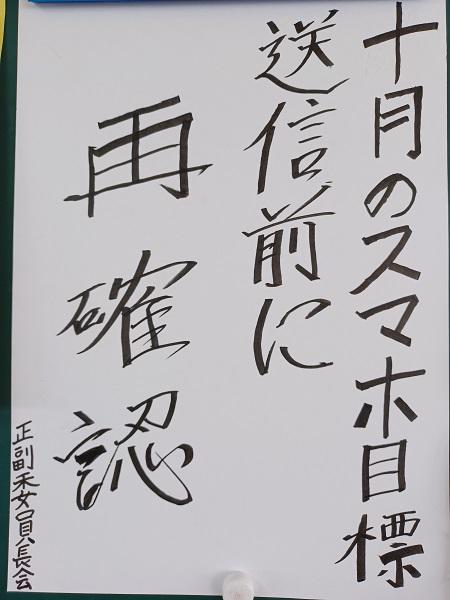 十月のスマホ目標
送信前に
再確認
正副委員長会